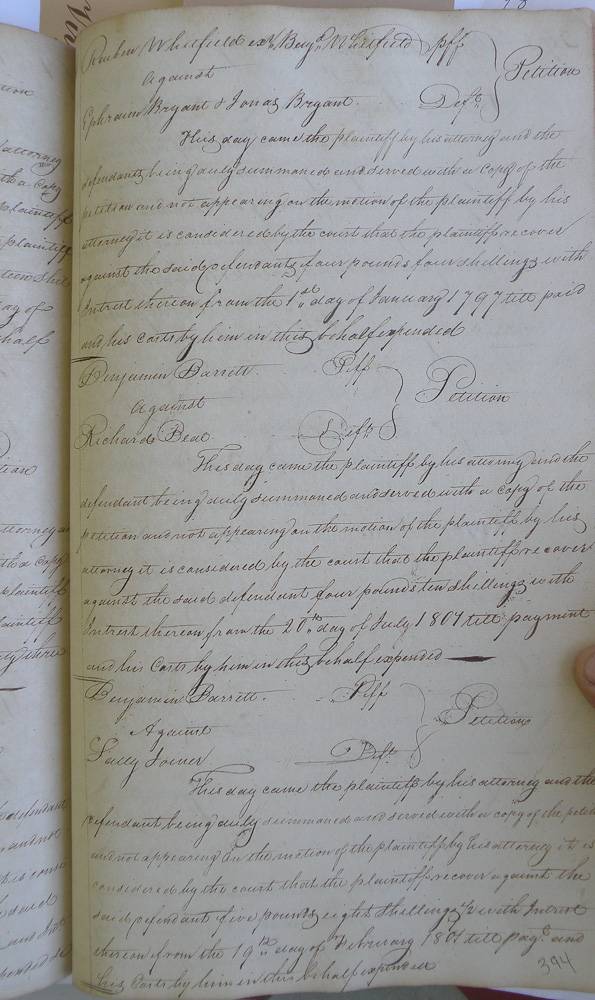 Reuben Whitfield exr. Benjn. Whitfield pff
Against
Petition
Ephraim Bryant & Jonas Bryant Defts
This day came the plaintiff by his attorney and the
defendants being duly summoned and served with a copy of the
petition and not appearing on the motion of the plaintiff by his
attorney it is considered by the court that the plaintiff recover
against the said defendants four pounds four shillings with
Intrest thereon from the 1st day of January 1797 till paid
and his costs by him in this behalf expended
Benjamin Barrett Plff
Against
Petition
Richard Beal Deft
This day came the plaintiff by his attorney and the
defendant being duly summoned and served with a copy of the
petition and not appearing on the motion of the plaintiff by his
attorney it is considered by the court that the plaintiff recover
against the said defendant four pounds ten shillings with
Intrest thereon from the 20th day of July 1801 till payment
and his Costs by him in this behalf expended
Benjamin Barrett Plff
Against
Petition
Sally Joiner Deft
This day came the plaintiff by his attorney and the
defendant being duly summoned and served with a copy of the petition
and not appearing on the motion of the plaintiff by his attorney it is
considered by the court that the plaintiff recover against the
said defendant five pounds eight shillings with Intrest
thereon from the 19th day of February 1801 till and
his Costs by him in this behalf expended
394